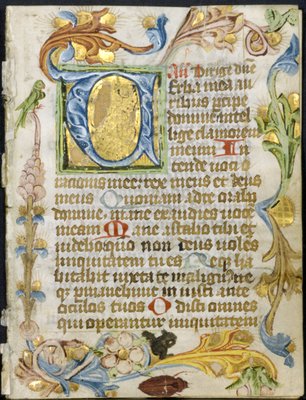 Dirige dñe
Verba mea au
ribus percipe
domine intel
lige clamorem
meum In
tende voci o
rationis mee rex meus et deus
meus Quoniam ad te orabo
domine mane exaudies vocē
meam Mane astabo tibi et
videbo quo non deus volēs
iniquitatem tu es Neq; ha
bitabit iuxta te malignꝰ ne
q; ꝑmanebunt iniusti ante
oculos tuos Odisti omnes
qui operantur iniquitatem